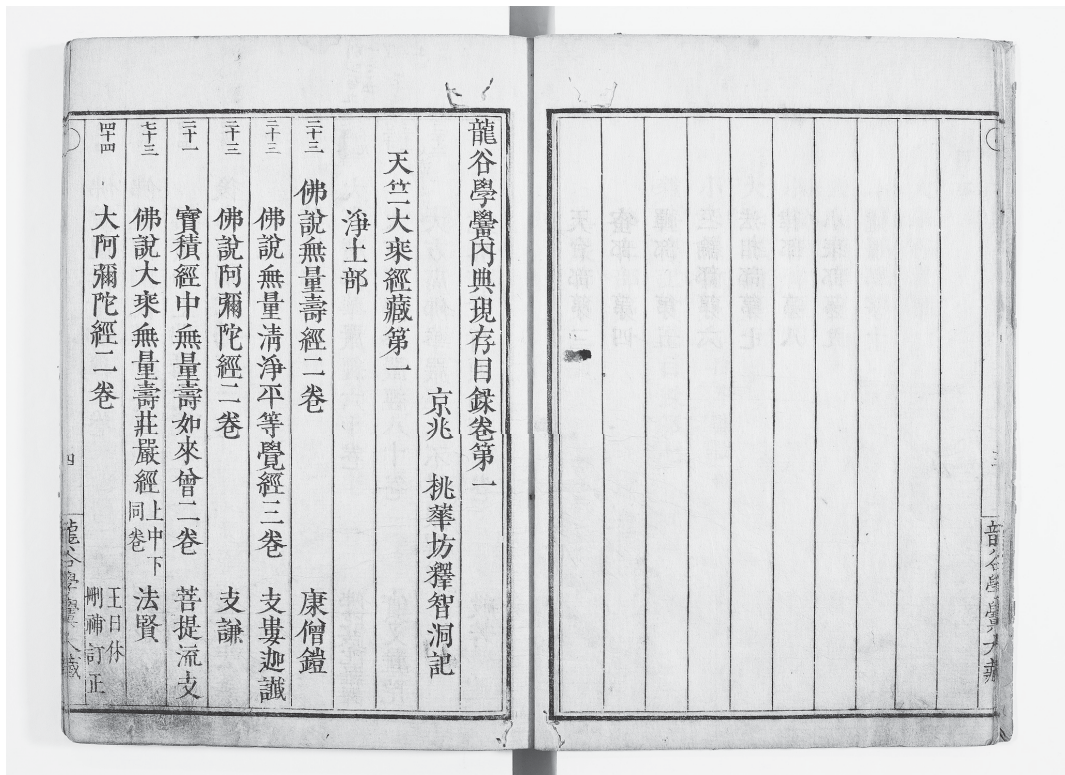 龍谷學黌大藏
三
龍谷學黌內典現存目錄卷第一
京兆 桃華坊釋智洞記
天竺大乘經藏第一
淨土部
二十三 佛說無量壽經二卷 康僧鎧
二十三 佛說無量清淨平等覺經三卷 支婁迦讖
二十三 佛說阿彌陀經二卷 支謙
二十一 寶積經中無量壽如來會二卷 菩提流支
七十三 佛說大乘無量壽莊嚴經上中下同卷 法賢
四十四 大阿彌陀經二卷 王日休刪補訂正
四
龍谷學黌大藏